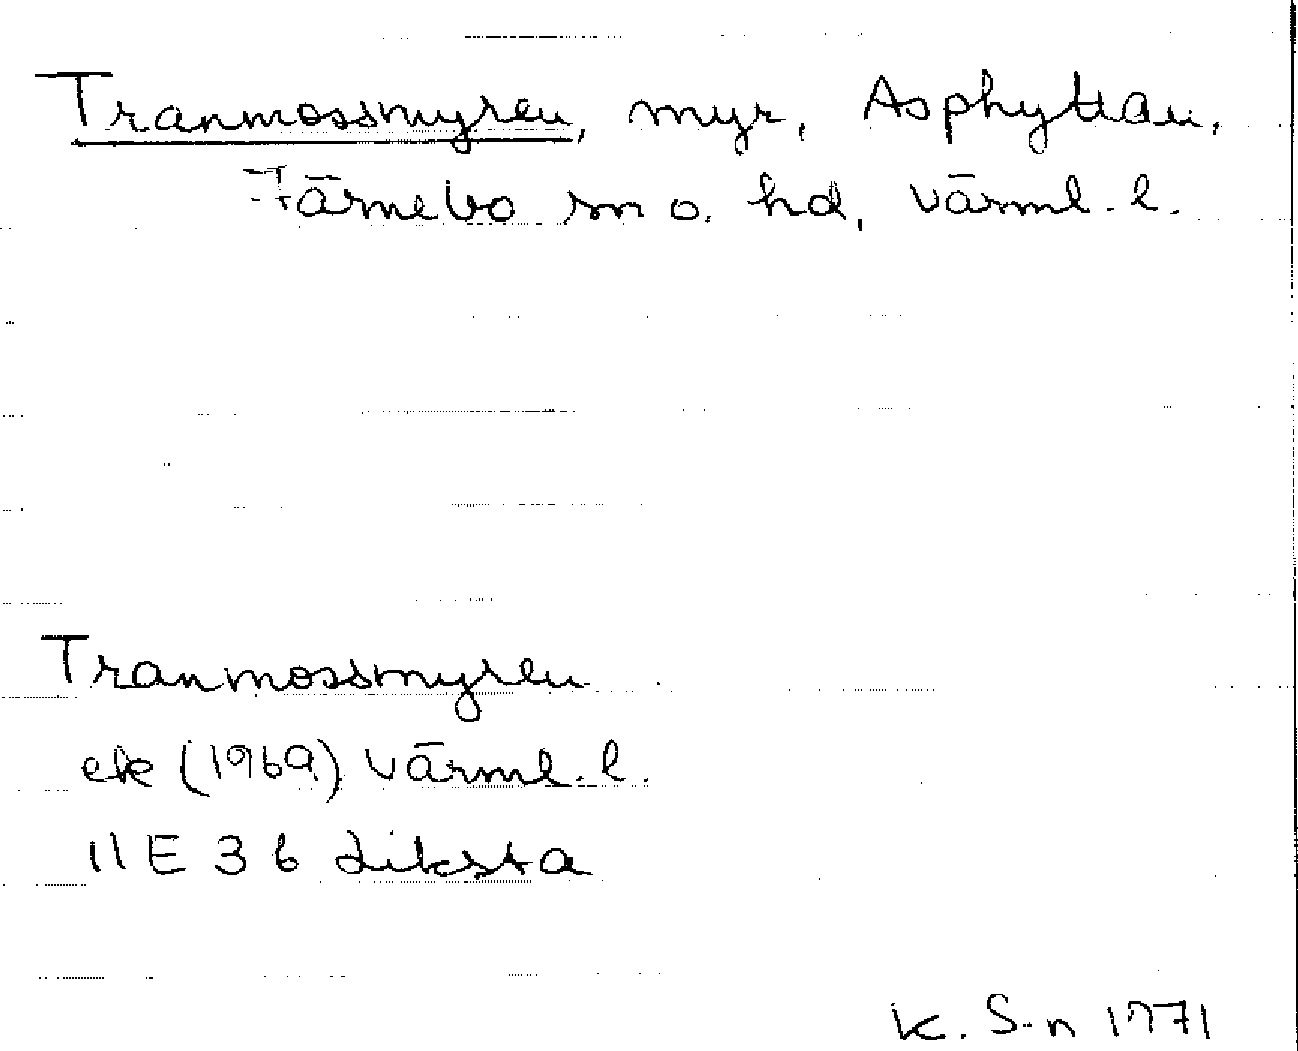 Tranmossmyren, myr, Asphyttan,
Färnebo sn o. hd, Värml. l.
Tranmossmyren
ek (1969) Värml. l.
11 E 3 b Liksta
K. S-n 1971